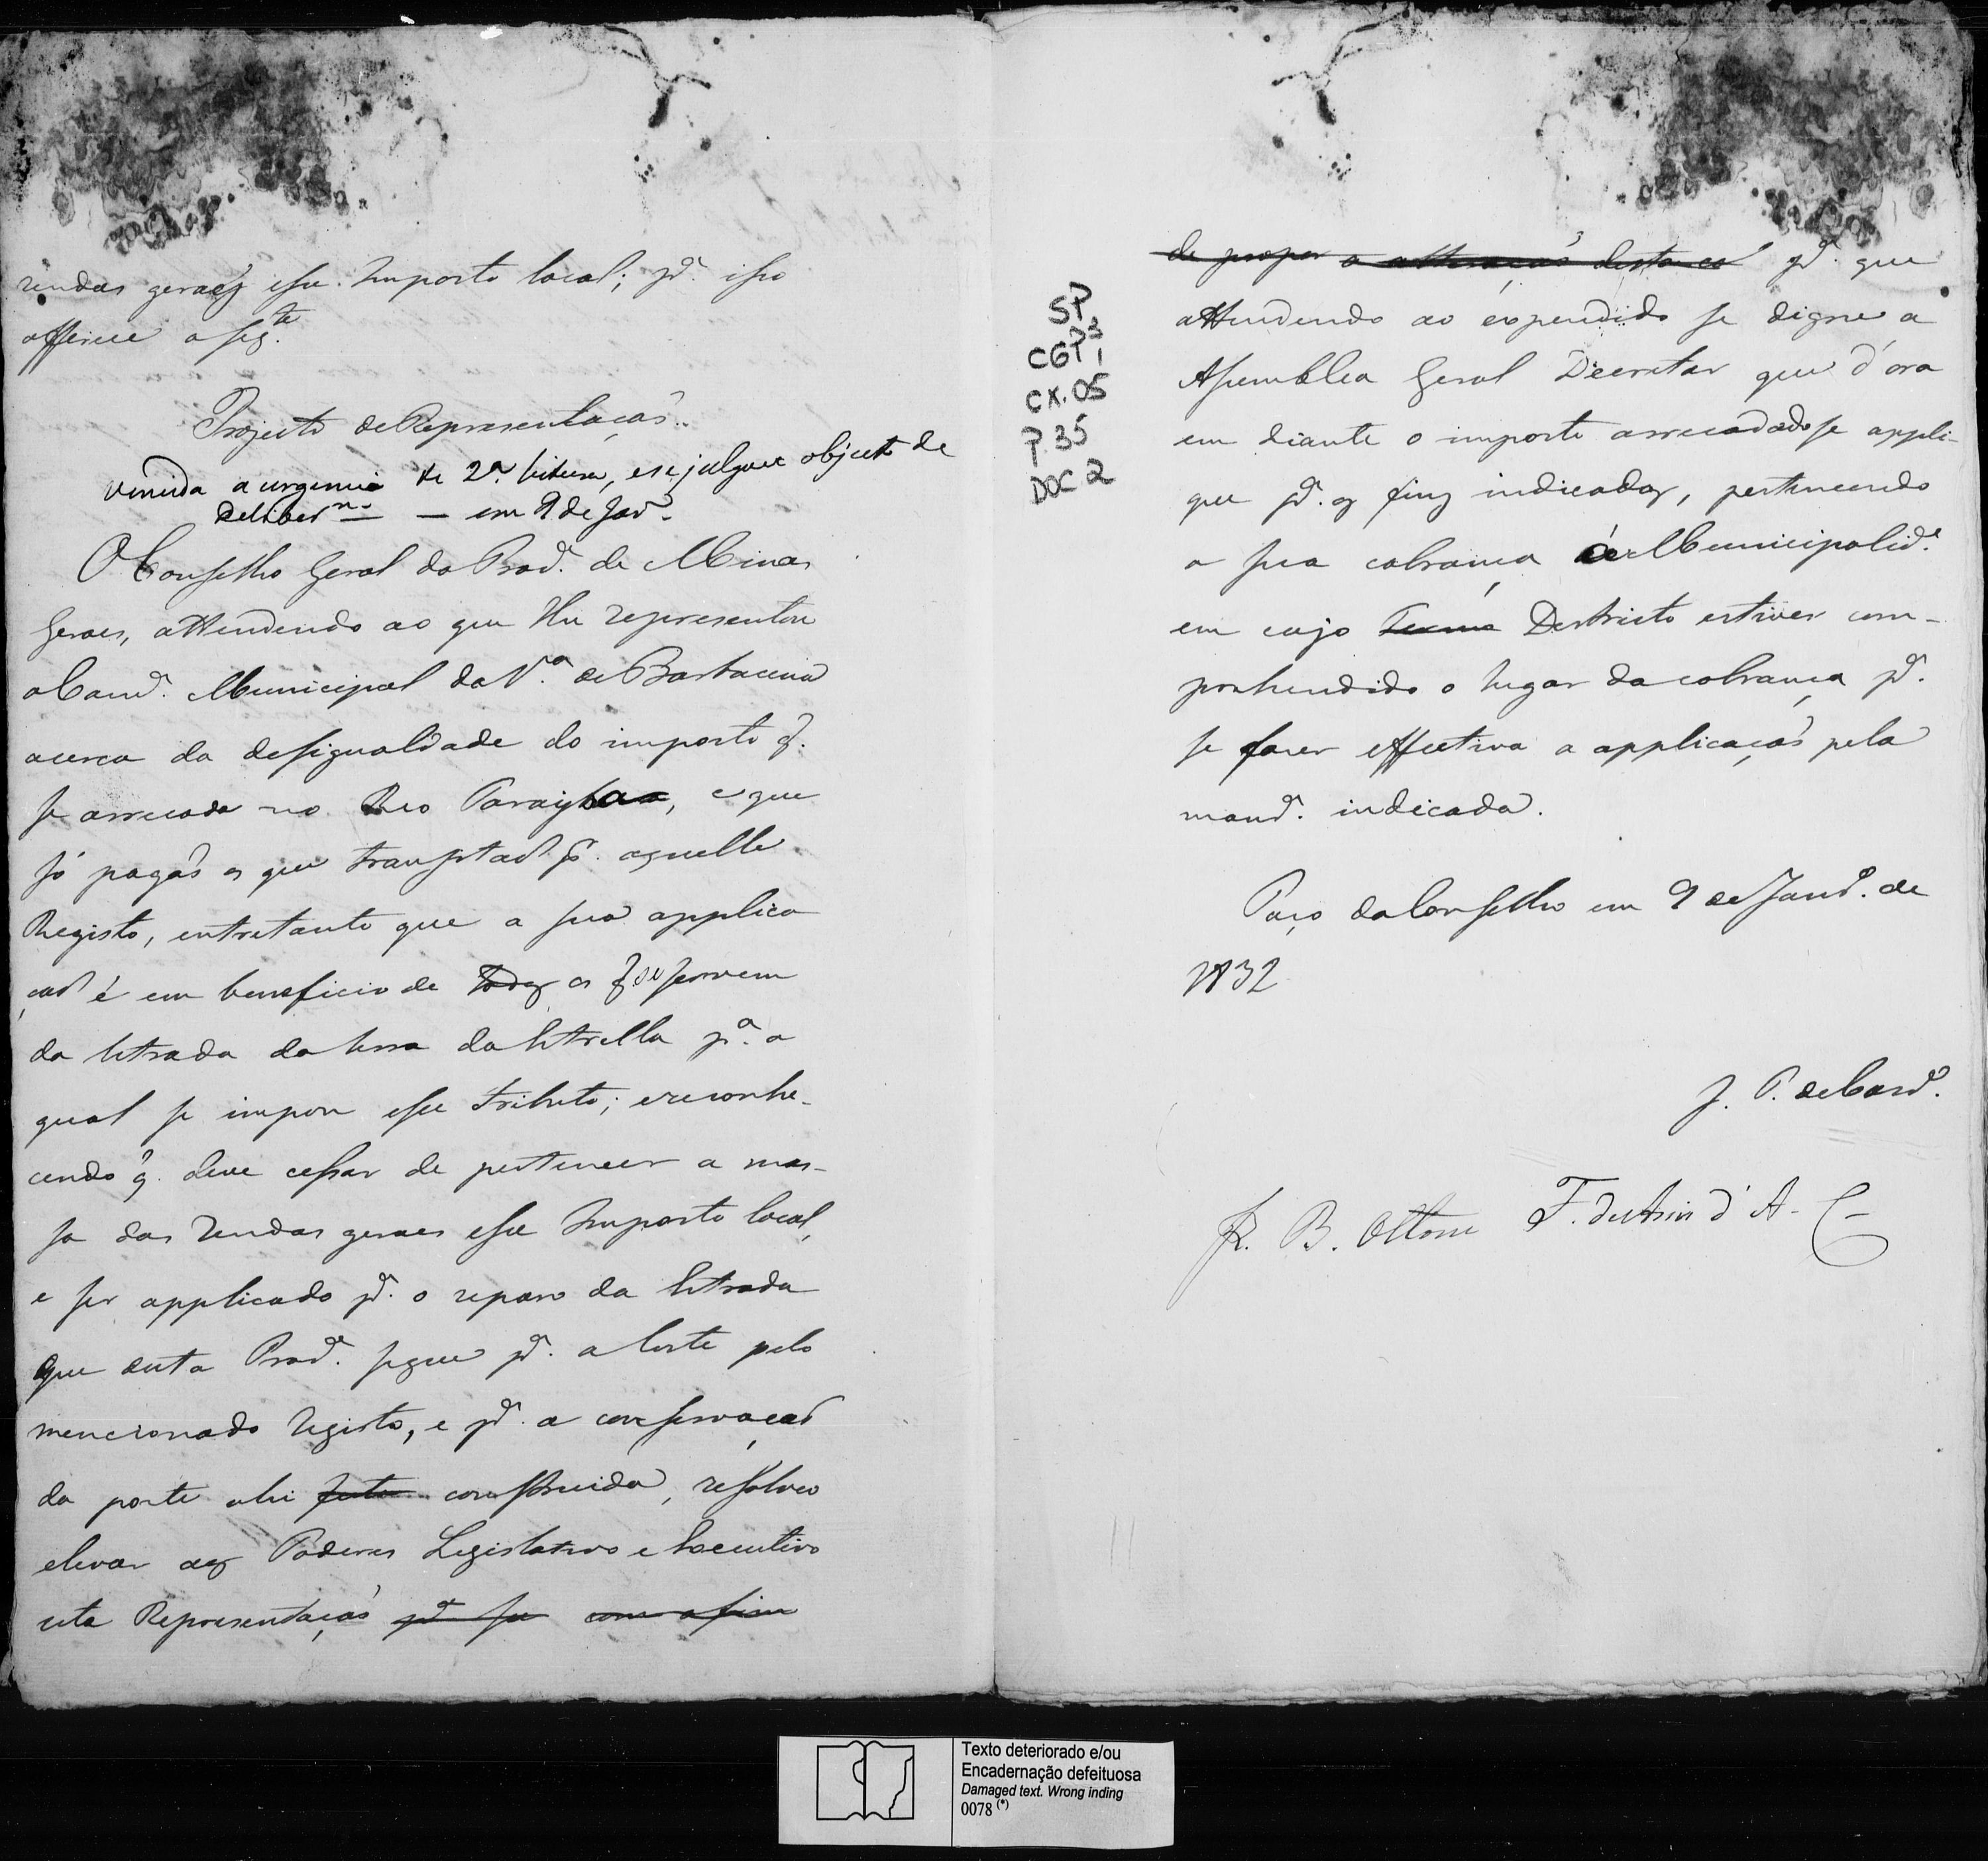 rendas geraes esse Imposto local; pª. isso
offerece o segte.
Projecto de Representação.
Vencida a urgencia de 2ª. leitura, e se julgou objecto de
deliberm. — em 9 de Janº.
O Conselho Geral da Provª. de Minas
Geraes, attendendo ao que lhe representou
a Camª. Municipal da Vª. de Barbacena
acerca da desigualdade do imposto q.
se arrecada no Rio Parayba, e que
só pagão os que transitão pr. aquelle
Registo, entretanto que a sua applica
ção é em beneficio de todos os q se servem
da Estrada da Serra da Estrella pª. a
qual se impoz esse tributo; e reconhe-
cendo q. deve cessar de pertencer a mas-
sa das rendas geraes esse Imposto local,
e ser applicado pª. o reparo da Estrada
que desta Provª. segue pª. a Corte pelo
mencionado registo, e pª. a conservação
da ponte ahi feita construida, resolveo
elevar aos Poderes Legislativo e Executivo
esta Representação pª se com o fim
de propor a alteração desta pª. que
attendendo ao expendido se digne a
Assemblea Geral Decretar que d'ora
em diante o imposto arrecadado se appli-
que pª. os fins indicados, pertencendo
a sua cobrança á Municipalide.
em cujo Termo Destricto estiver com-
prehendido o lugar da cobrança pª.
se fazer effectiva a applicação pela
manrª. indicada.
Paço do Conselho em 9 de Janrº. de
1832
J. P. de Carvº.
J. B. Ottoni F. de Assis d'A-
SP
CGP1, 3
CX. 05
P. 35
DOC 2
Texto deteriorado e/ou
Encadernação defeituosa
Damaged text. Wrong inding
0078 (*)